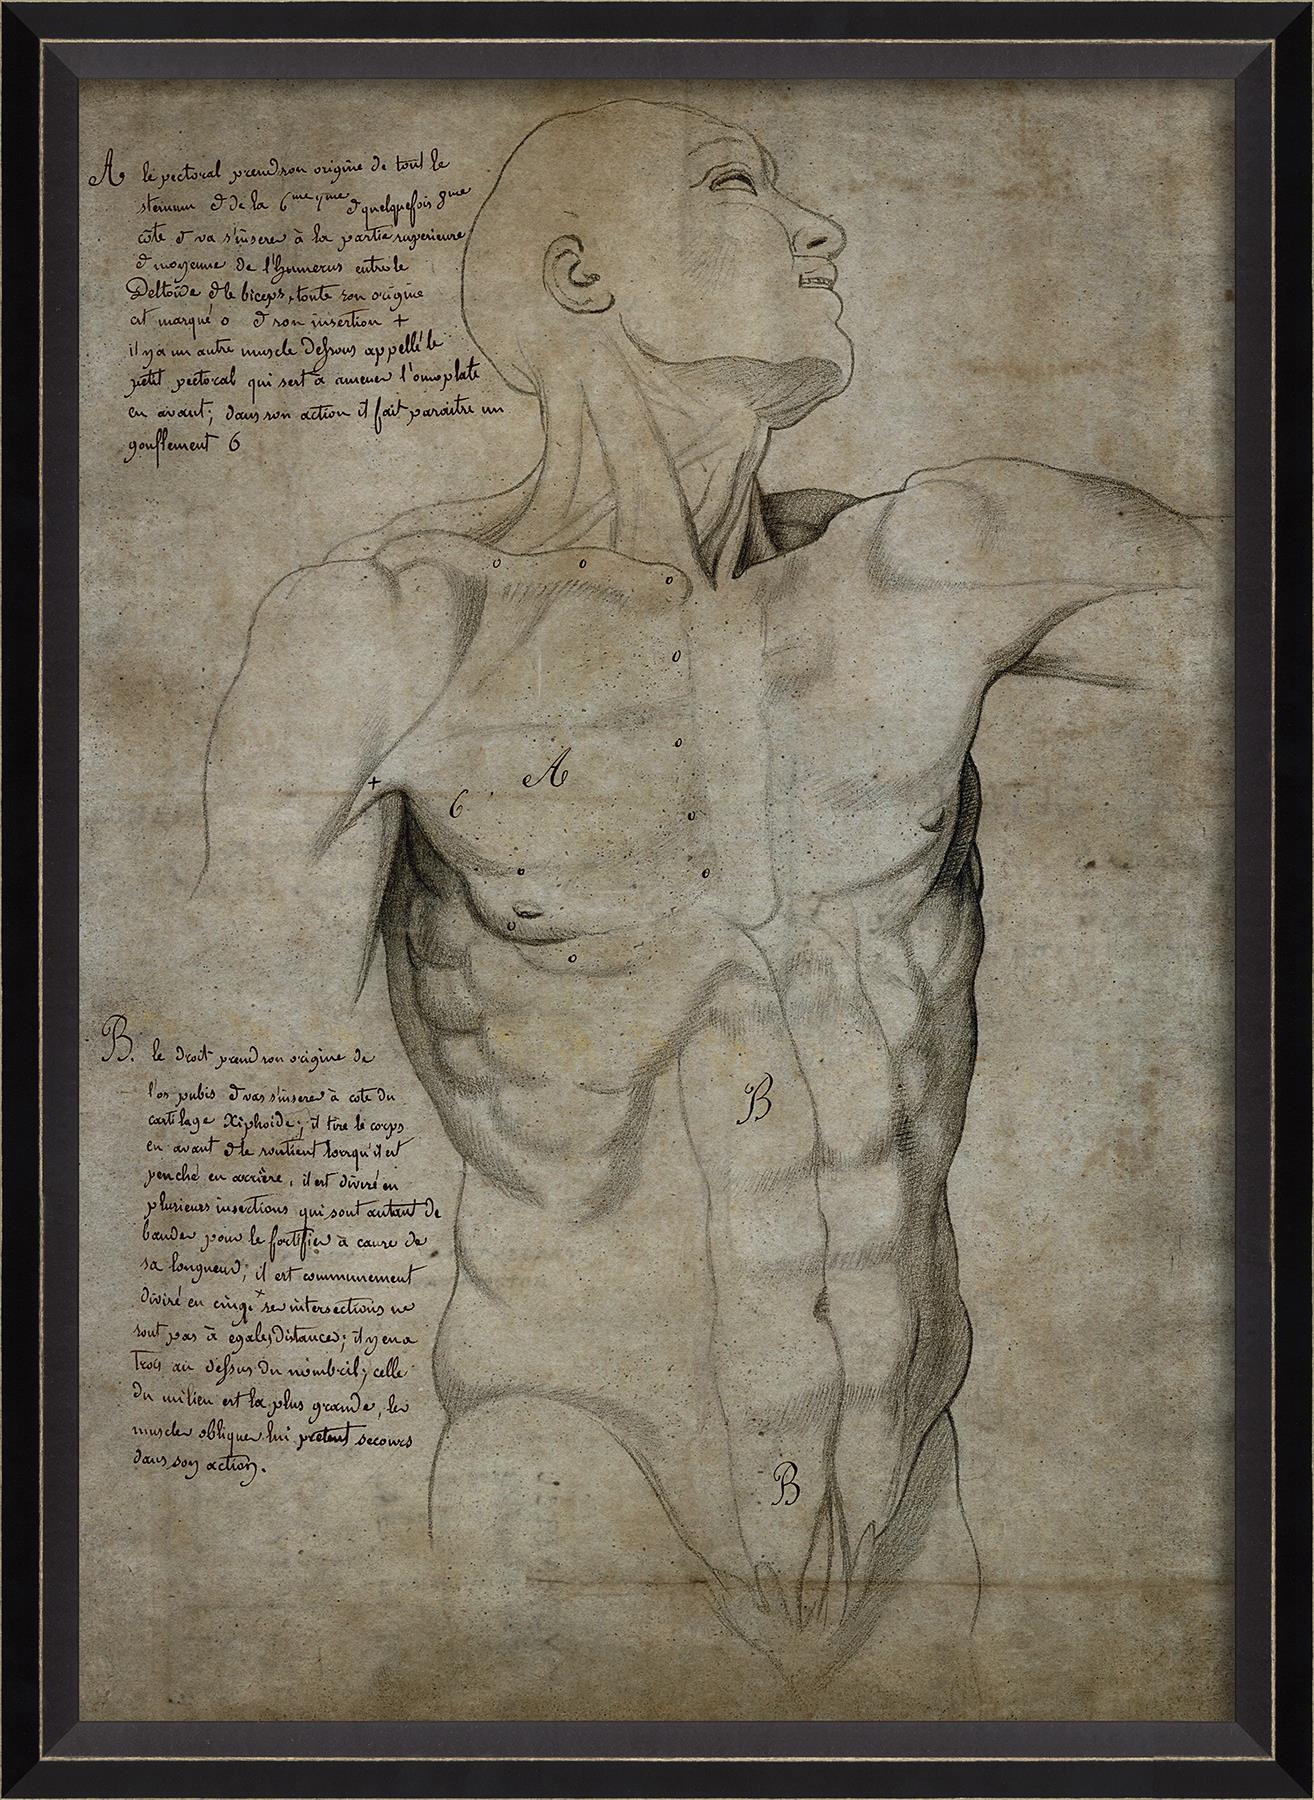 A. le pectoral prend son origine de tout le
sternum & de la 6me 7me & quelquefois 8me
côte & va s'inserer à la partie superieure
& moyenne de l'humerus entre le
Deltoïde & le biceps, toute son origine
est marqué o & son insertion +
il y a un autre muscle dessous appellé le
petit pectoral qui sert à amener l'omoplate
en avant; dans son action il fait paraitre un
gonflement 6
o o o
o
o
A
+
6
o
o o
o
o
B. le droit prend son origine de
l'os pubis & va s'inserer à cote du
cartilage Xiphoide; il tire le corps
en avant & le soutient lorsqu'il est
penché en arrière, il est divisé en
plusieurs insections qui sont autant de
bandes pour le fortifier à cause de
sa longueur; il est communement
divisé en cinq. x ses intersections ne
sont pas à egales distances; il y en a
trois au dessus du nombril; celle
du milieu est la plus grande, les
muscles obliques lui pretent secours
dans son action.
B
B